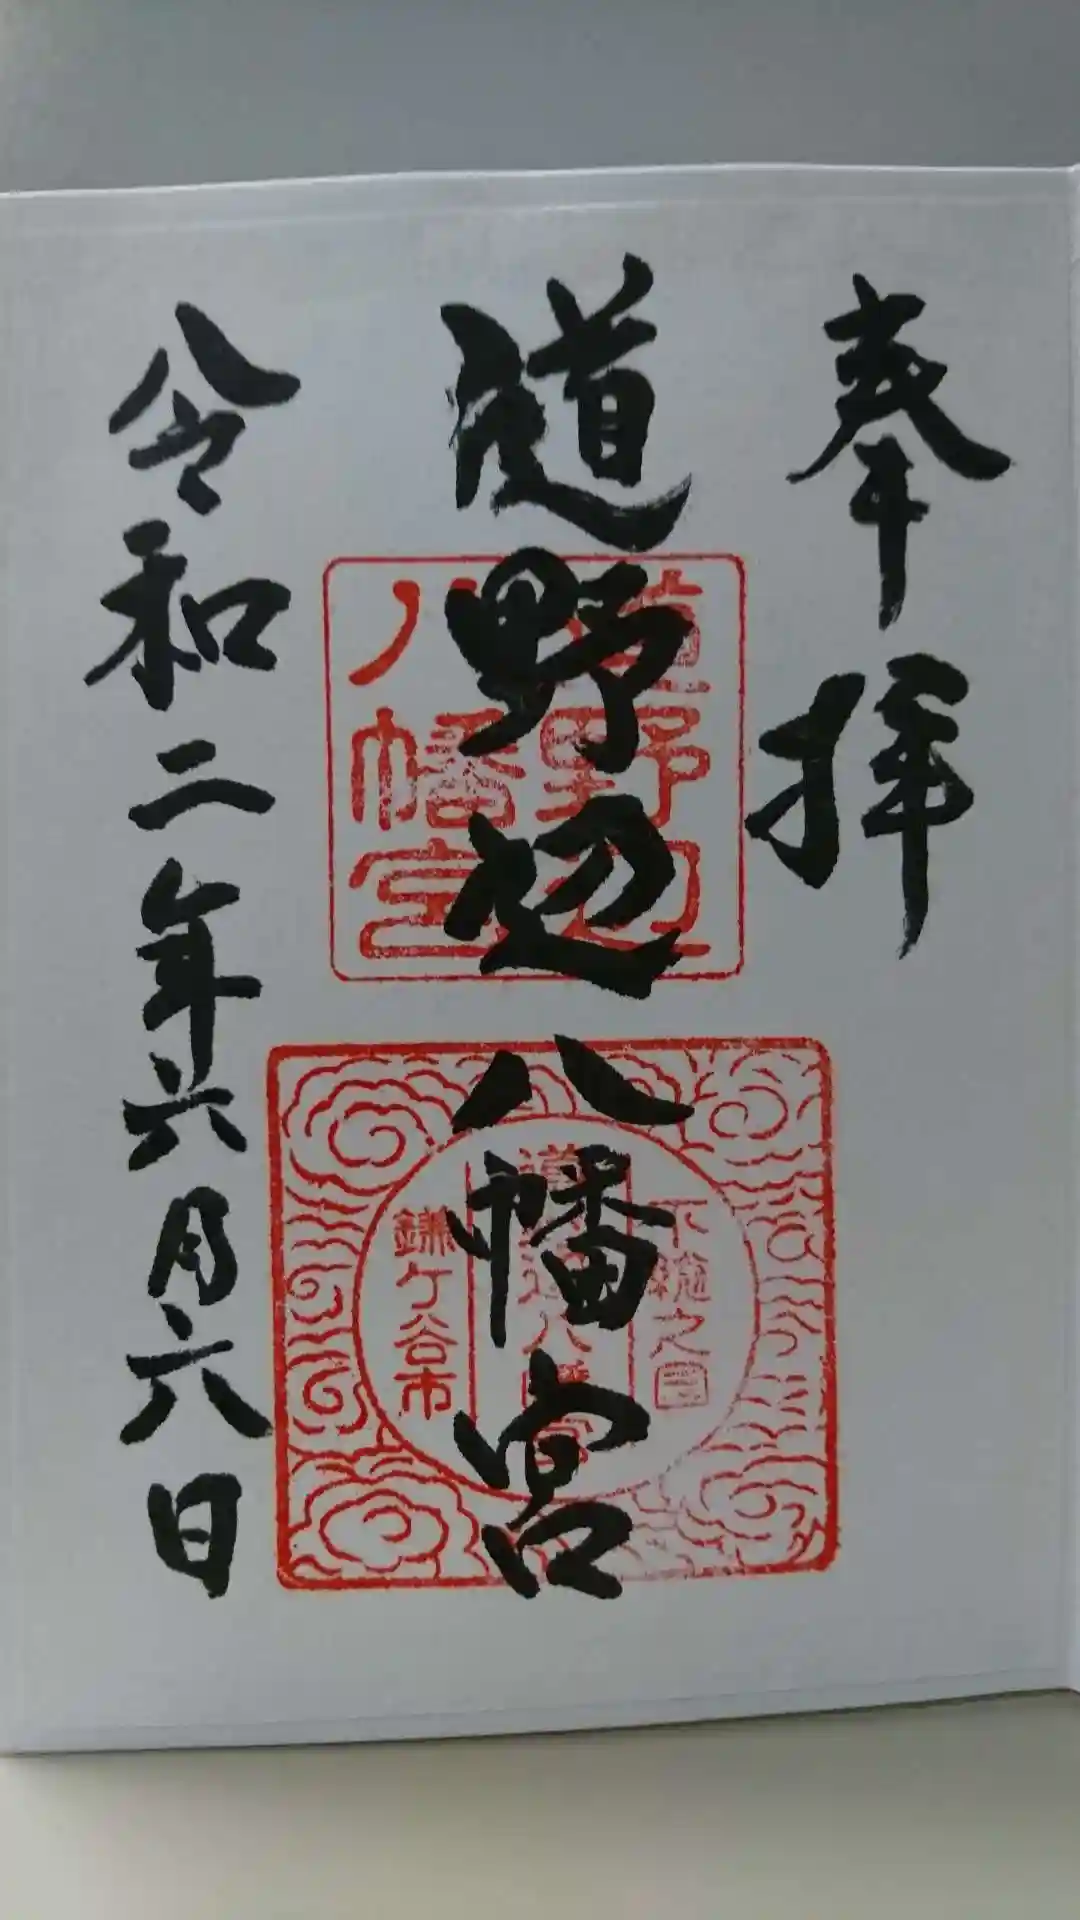 奉拝
道野辺八幡宮
令和二年六月六日
道野辺
八幡宮
下総之国
道野辺八幡宮
鎌ヶ谷市